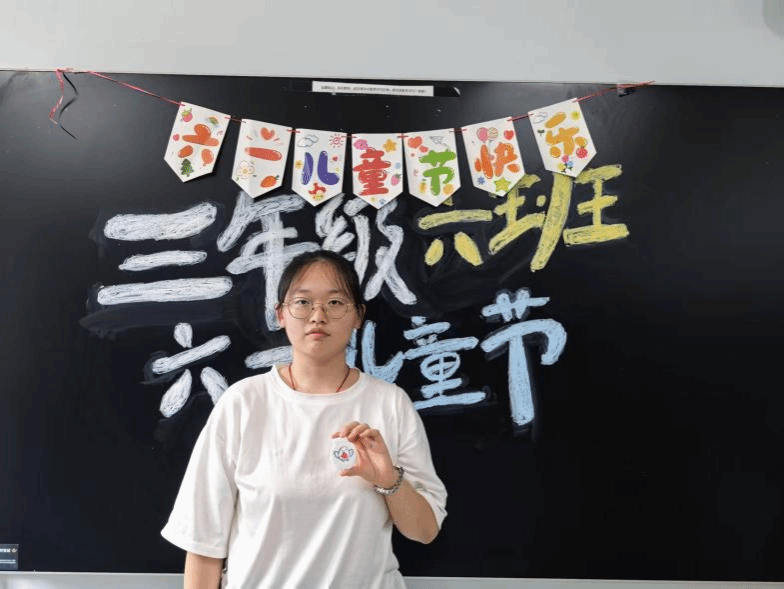 六一儿童节快乐
三年级六班
六一儿童节